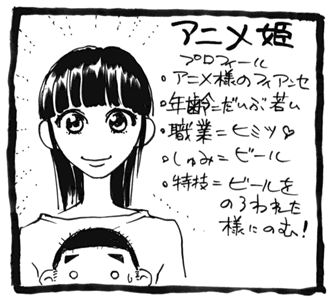 アニメ姫
プロフィール
・アニメ様のフィアンセ
・年齢=だいぶ若い
・職業=ヒミツ♡
・しゅみ=ビール
・特技=ビールを
のろわれた
様にのむ!